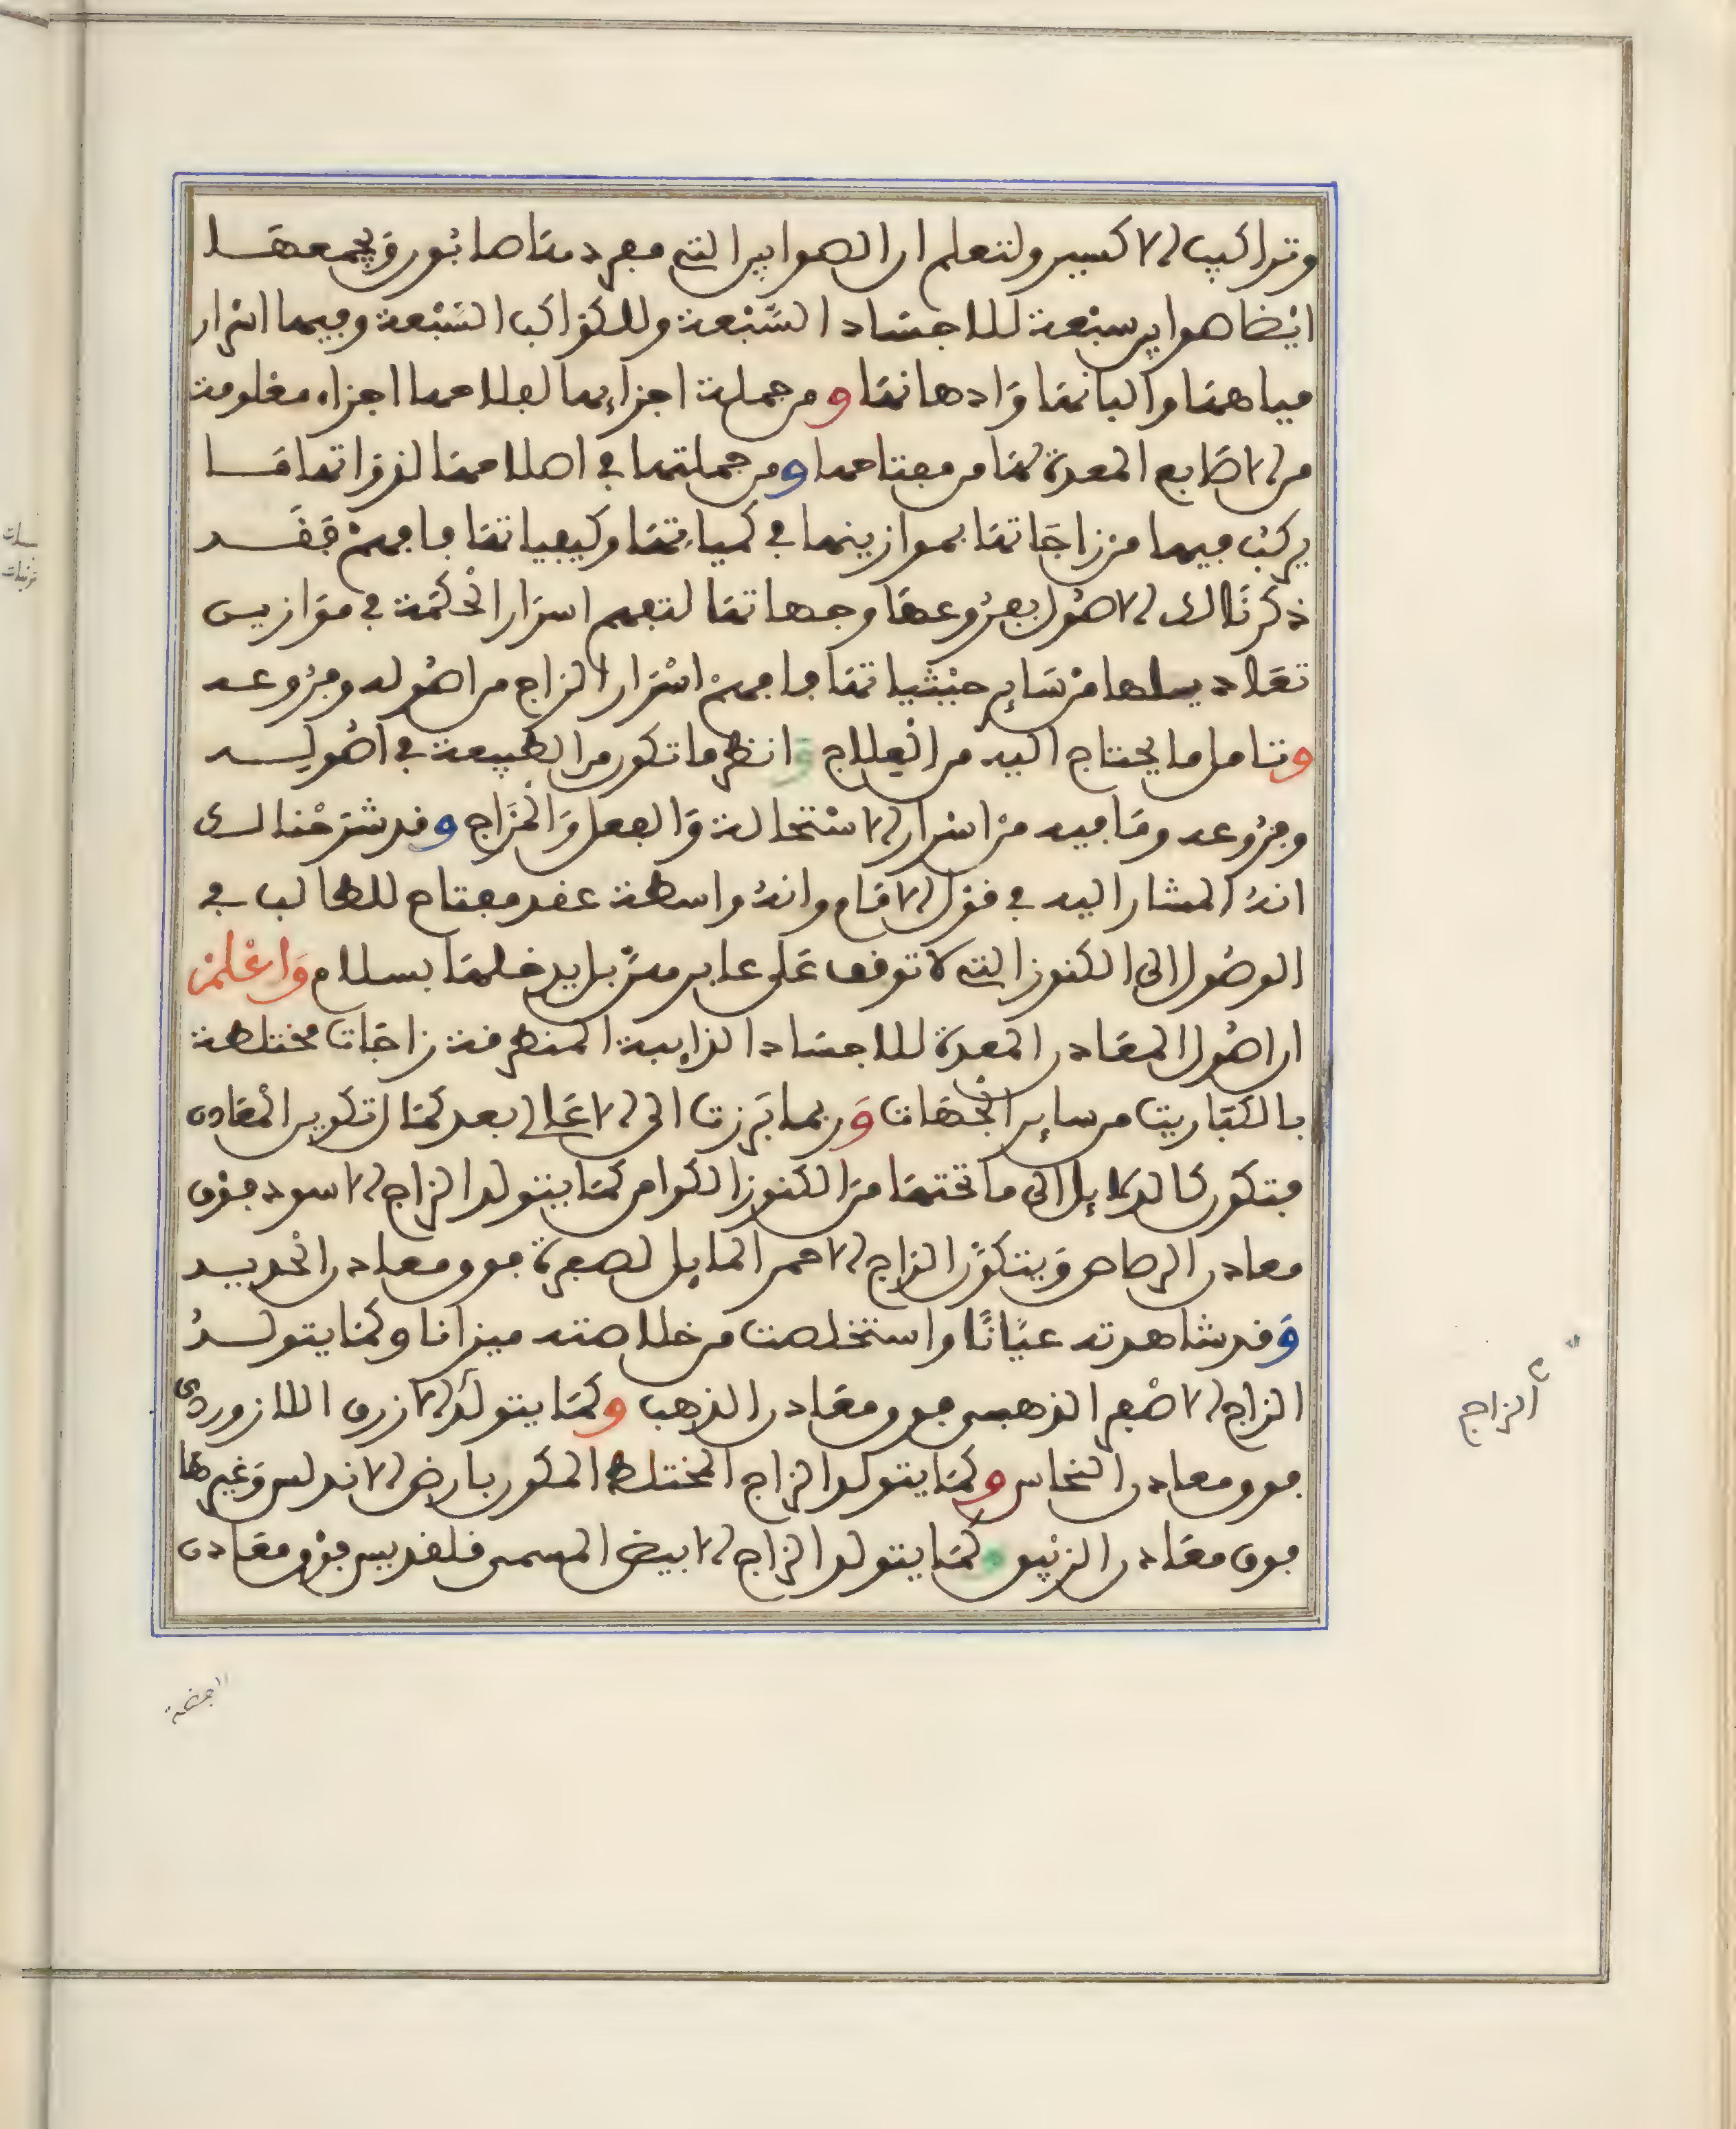 وتراكيب الاكسير ولتعلم ان الصوابير التي مفردمتاصابون ويجمعها
ايضا هوابير سبعة للاجساد السبعة وللكواكب السبعة وفيها اسرار
مياهها والبانها وادهانها ومن جملة اجزايها لفلاحها اجزاء معلومة
من الاصابع المعدة لها من مفتاحها ومن جملتها في اصلاحها لذواتها ما
يركب فيها من زاجاتها بموازينها في كمياتها وكيفياتها فافهم فقد
ذكرنا لك الاصول بفروعها وجهاتها لتفهم اسرار الحكمة في موازين
تعاديلها من ساير حيثياتها فافهم اسرار الزاج من اصوله وفروعه
وتامل ما يحتاج اليه من العلاج وانظر ما تكون من الطبيعة في اصوله
وفروعه وما فيه من اسرار الاستحالة والفعل والمزاج وقد شرحنا لك
انه المشار اليه في قول الامام وانه واسطة عقد مفتاح للطالب في
الوصول الى الكنوز التي لا توقف على عابر منز بل يدخلها بسلام واعلم
ان اصول المعادن المعدة للاجساد الذايبة المنطرقة زاجات مختلطة
بالكباريت من ساير الجهات وربما برزت الى الاعالي بعد كمال تكوين المعادن
فتكون كالدلايل الى ما تحتها من الكنوز الكوامن كما يتولد الزاج الاسود فوق
معادن الرصاص ويتكون الزاج الاحمر المايل لصفرة فوق معادن الحديد
وقد شاهدته عيانا واستخلصت من خلاصته ميزانا وكما يتولد
الزاج الاصفر الذهبي فوق معادن الذهب وكما يتولد الازرق اللازوردي
فوق معادن النحاس وكما يتولد الزاج المختلط المكون بارض الاندلس وغيرها
فوق معادن الزيبق وكما يتولد الزاج الابيض المسمى قلقديس فوق معادن
الزاج
الفضة